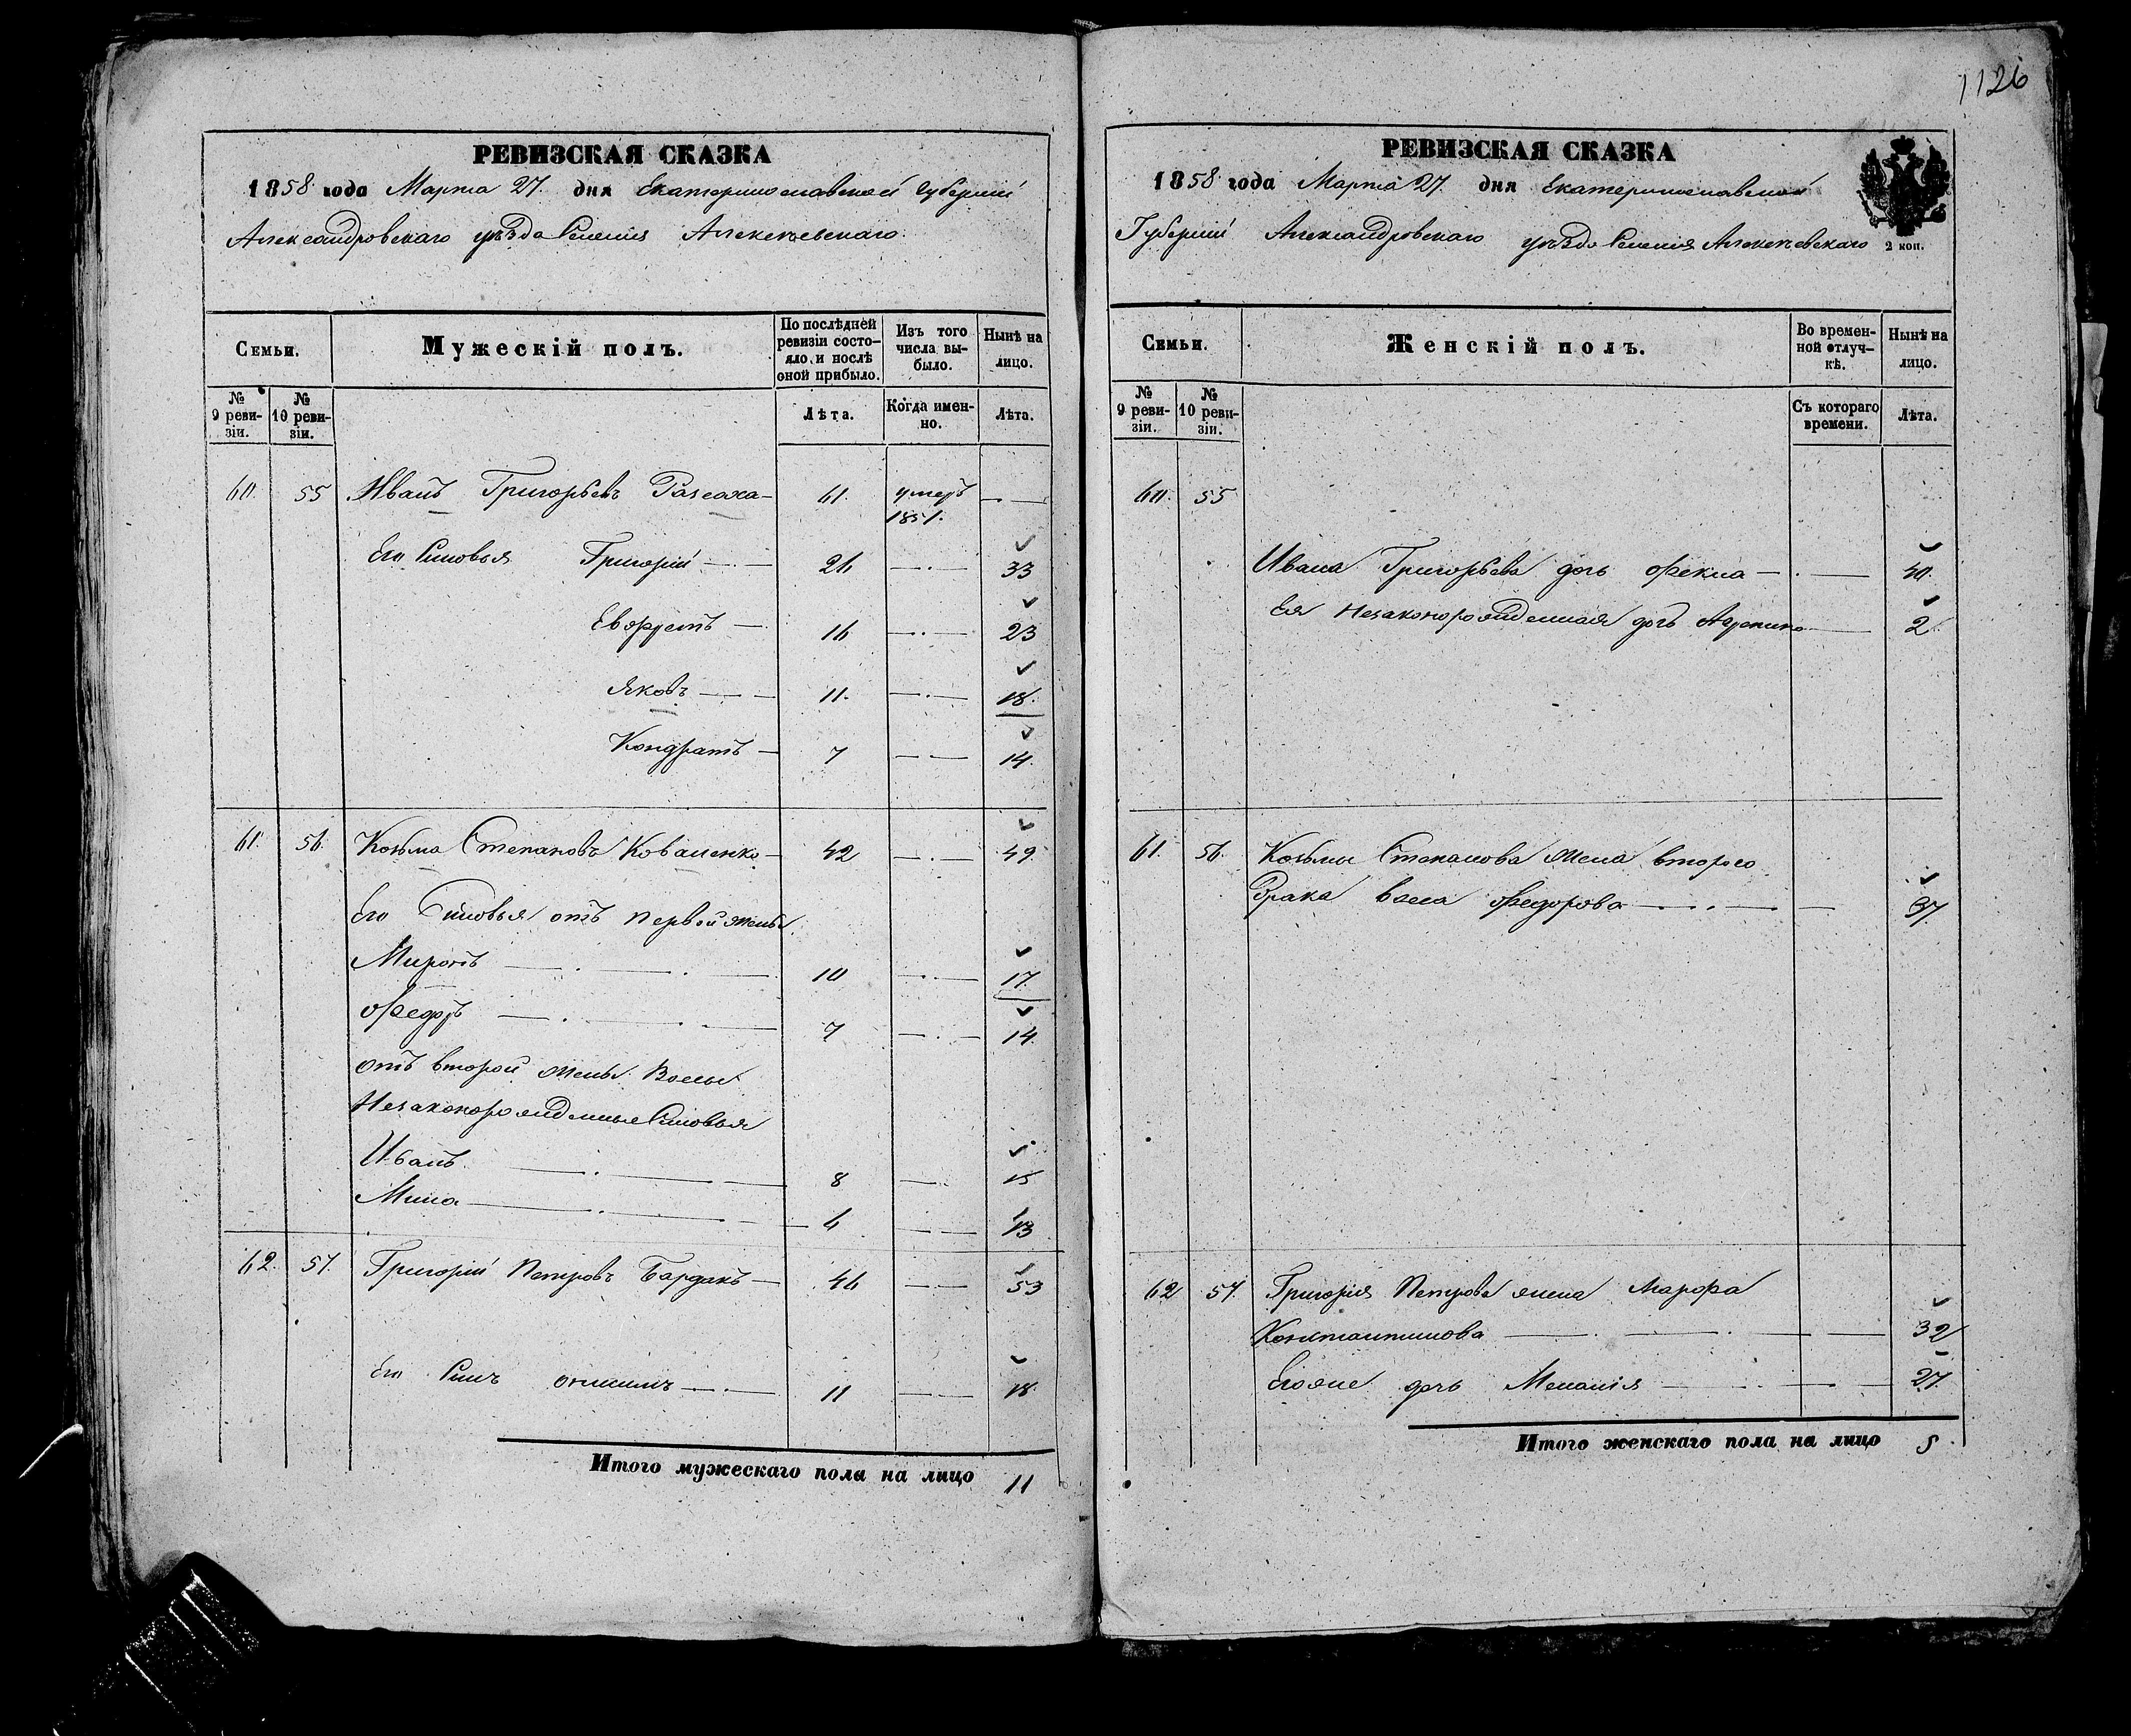 1126
РЕВИЗСКАЯ СКАЗКА
1858 года Марта 27. дня Екатеринославской Губерніи
Александровскаго уѣзда Селенія Алексѣевскаго.
Семьи.
Мужескій полъ.
По послѣдней ревизіи состояло и послѣ оной прибыло.
Изъ того числа выбыло.
Нынѣ на лицо.
№ 9 ревизіи.
№ 10 ревизіи.
Лѣта.
Когда именно.
Лѣта.
60. 55 Иванъ Григорьевъ 61. умеръ 1851.
Его Сыновья Григорій 26 33
16 23
Яковъ 11. 18.
Кондратъ 7 14.
61. 56. Козьма Степановъ Коваленко 42 49
Его Сыновья отъ первой жены
Миронъ 10 17.
Федоръ 7 14.
отъ второй жены Васы
Незаконорожденные Сыновья
Иванъ 8 15
Мина 6 13
62. 57. Григорій Петровъ Бардакъ 46 53
Его Сынъ 11 18.
Итого мужескаго пола на лицо 11
РЕВИЗСКАЯ СКАЗКА
1858 года Марта 27. дня Екатеринославской
Губерніи Александровскаго уѣзда Селенія Алексѣевскаго
2 коп.
Семьи.
Женскій полъ.
Во временной отлучкѣ.
Нынѣ на лицо.
№ 9 ревизіи.
№ 10 ревизіи.
Съ котораго времени.
Лѣта.
60. 55
Ивана Григорьева дочь Фекла 40.
Ея Незаконорожденная дочь 2.
61. 56. Козьмы Степанова Жена втораго
брака Васа Федорова 37.
62 57. Григорія Петрова жена Марфа
Константинова 32
Егоже дочь Меланія 27.
Итого женскаго пола на лицо 5